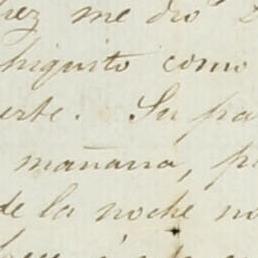 hez me dió
hiquito como
erte. Su pa
mañana, p
de la noche no